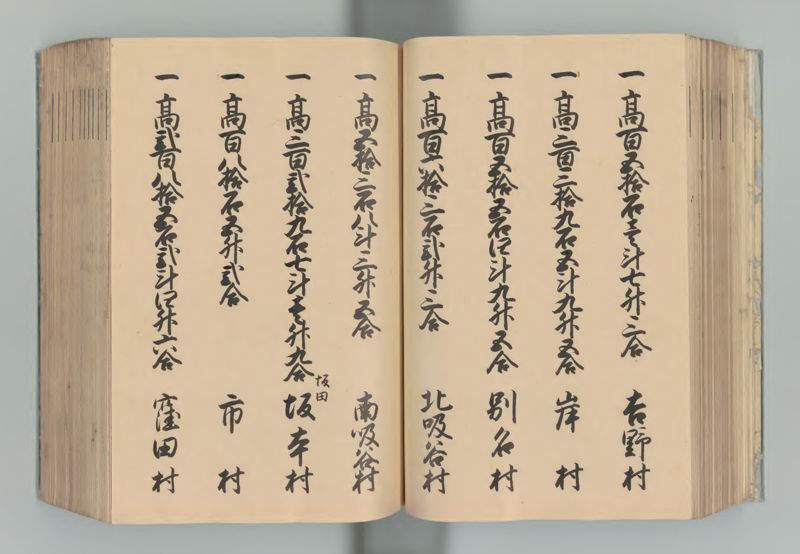 一 高百五拾石壱斗七升三合 吉野村
一 高三百三拾九石五斗九升五合 岸村
一 高百五拾五石四斗九升五合 別名村
一 高百六拾三石弐升三合 北吸谷村
一 高五拾三石八斗三升五合 南吸谷村
一 高三百弐拾九石七斗壱升九合 坂本村
坂田
一 高百八拾石五升弐合 市村
一 高弐百八拾五石弐斗四升六合 窪田村